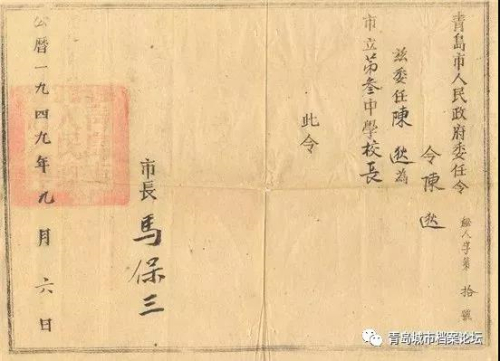 青島市人民政府委任令
令 陳
字第 拾 號
兹委任陳 為
市立第叁中學校長
此令
市長 馬保三
公曆一九四九年九月六日
青岛城市档案论坛